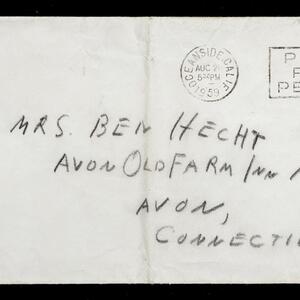 OCEANSIDE, CALIF.
AUG 2
5 30 PM
1959
P
F
PE
MRS. BEN HECHT
AVON OLD FARM INN
AVON,
CONNECTI